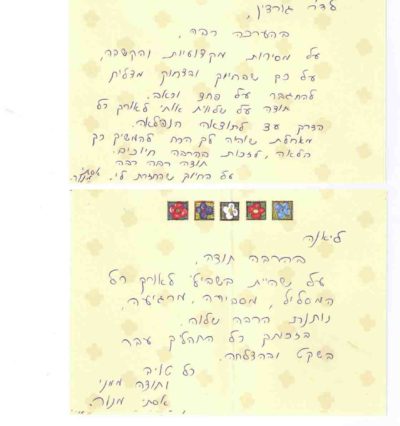 לד"ר גורדין,
בהערכה רבה,
על מסירות מקצועיות והקשבה,
על כך שבחיוך ובצחוק מצליח
להתגבר על פחד וכאב.
תודה על שלווית אותי לאורך כל
הדרך עד לתוצאה הנפלאה.
מאחלת שיהיה לך הכח להמשיך כך
הלאה, ולזכות בהרבה חיוכים.
תודה רבה רבה
על החיוך שהחזרת לי.
ליאנה
בהרבה תודה,
על שהיית בשבילי לאורך כל
המסלול, מסבירה, מרגיעה,
נותנת הרבה שלווה.
בזכותך כל התהליך עבר
בשקט ובהצלחה.
כל טוב
ותודה ממני
אסתי מנור.